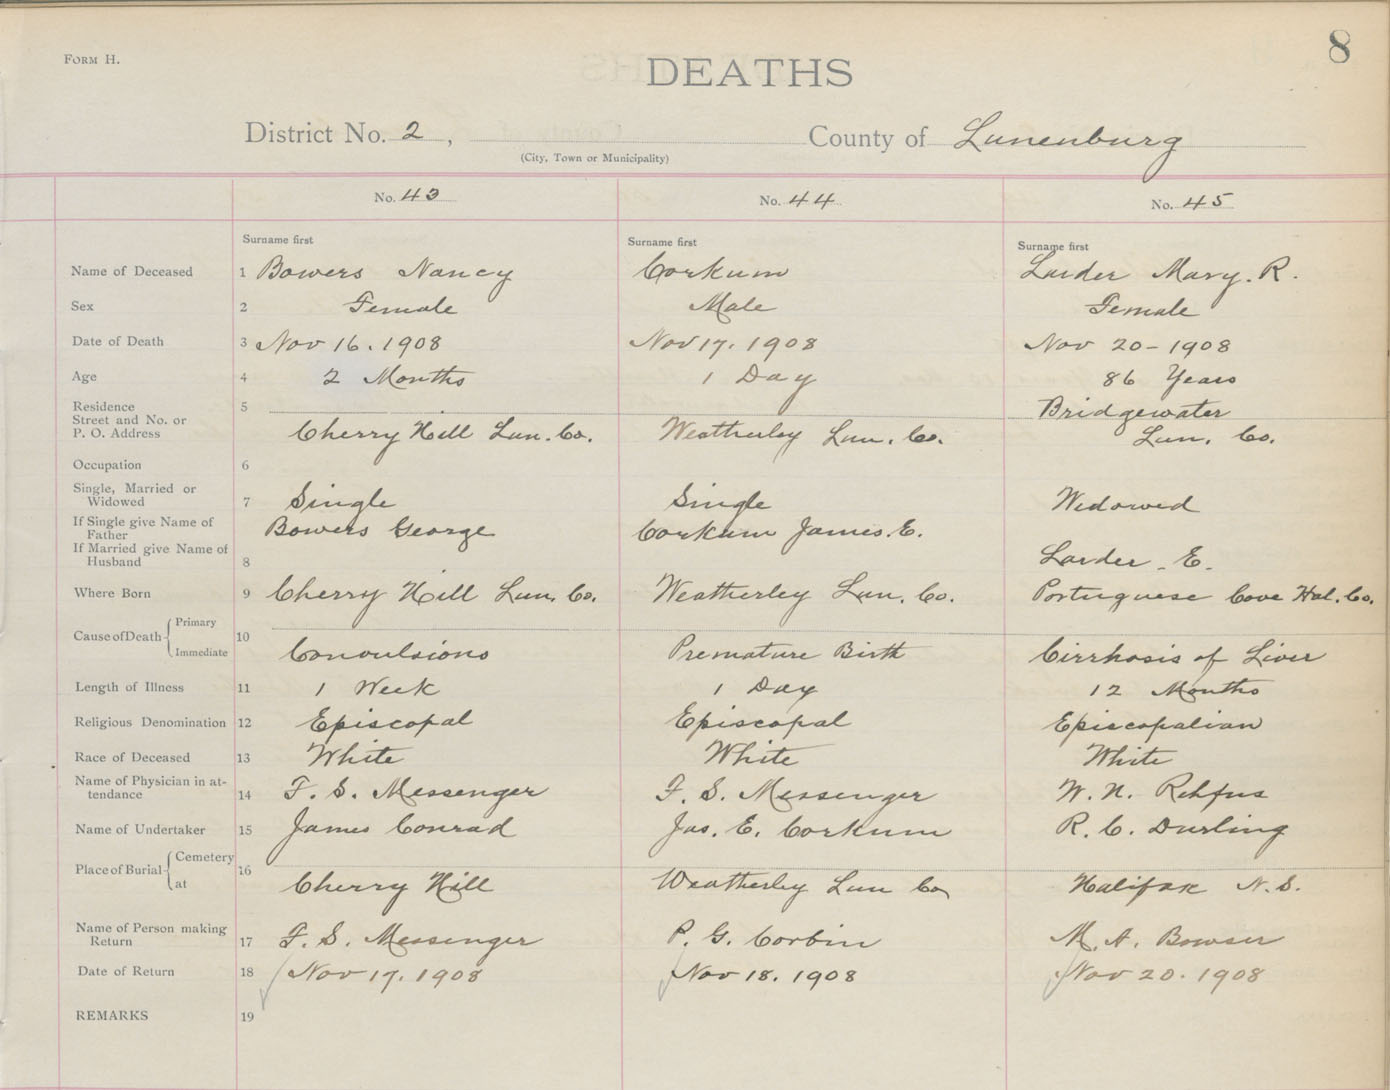 8
FORM H.
DEATHS
District No. 2, County of Lunenburg
(City, Town or Municipality)
No. 43 No. 44 No. 45
Surname first Surname first Surname first
Name of Deceased 1 Bowers Nancy Corkum Larder Mary. R.
Sex 2 Female Male Female
Date of Death 3 Nov 16. 1908 Nov 17. 1908 Nov 20 - 1908
Age 4 2 Months 1 Day 86 Years
Residence 5 Bridgewater
Street and No. or
P. O. Address Cherry Hill Lun. Co. Weatherley Lun. Co. Lun. Co.
Occupation 6
Single, Married or
Widowed 7 Single Single Widowed
If Single give Name of
Father Bowers George Corkum James. E.
If Married give Name of
Husband 8 Larder - E.
Where Born 9 Cherry Hill Lun. Co. Weatherley Lun. Co. Portuguese Cove Hal. Co.
Cause of Death Primary
10
Immediate Convulsions Premature Birth Cirrhosis of Liver
Length of Illness 11 1 Week 1 Day 12 Months
Religious Denomination 12 Episcopal Episcopal Episcopalian
Race of Deceased 13 White White White
Name of Physician in at-
tendance 14 F. S. Messenger F. S. Messenger W. N. Rehfus
Name of Undertaker 15 James Conrad Jas. E. Corkum R. C. Durling
Place of Burial Cemetery
16
at Cherry Hill Weatherley Lun Co Halifax N. S.
Name of Person making
Return 17 F. S. Messenger P. G. Corbin M. A. Bowser
Date of Return 18 Nov 17. 1908 Nov 18. 1908 Nov 20. 1908
REMARKS 19